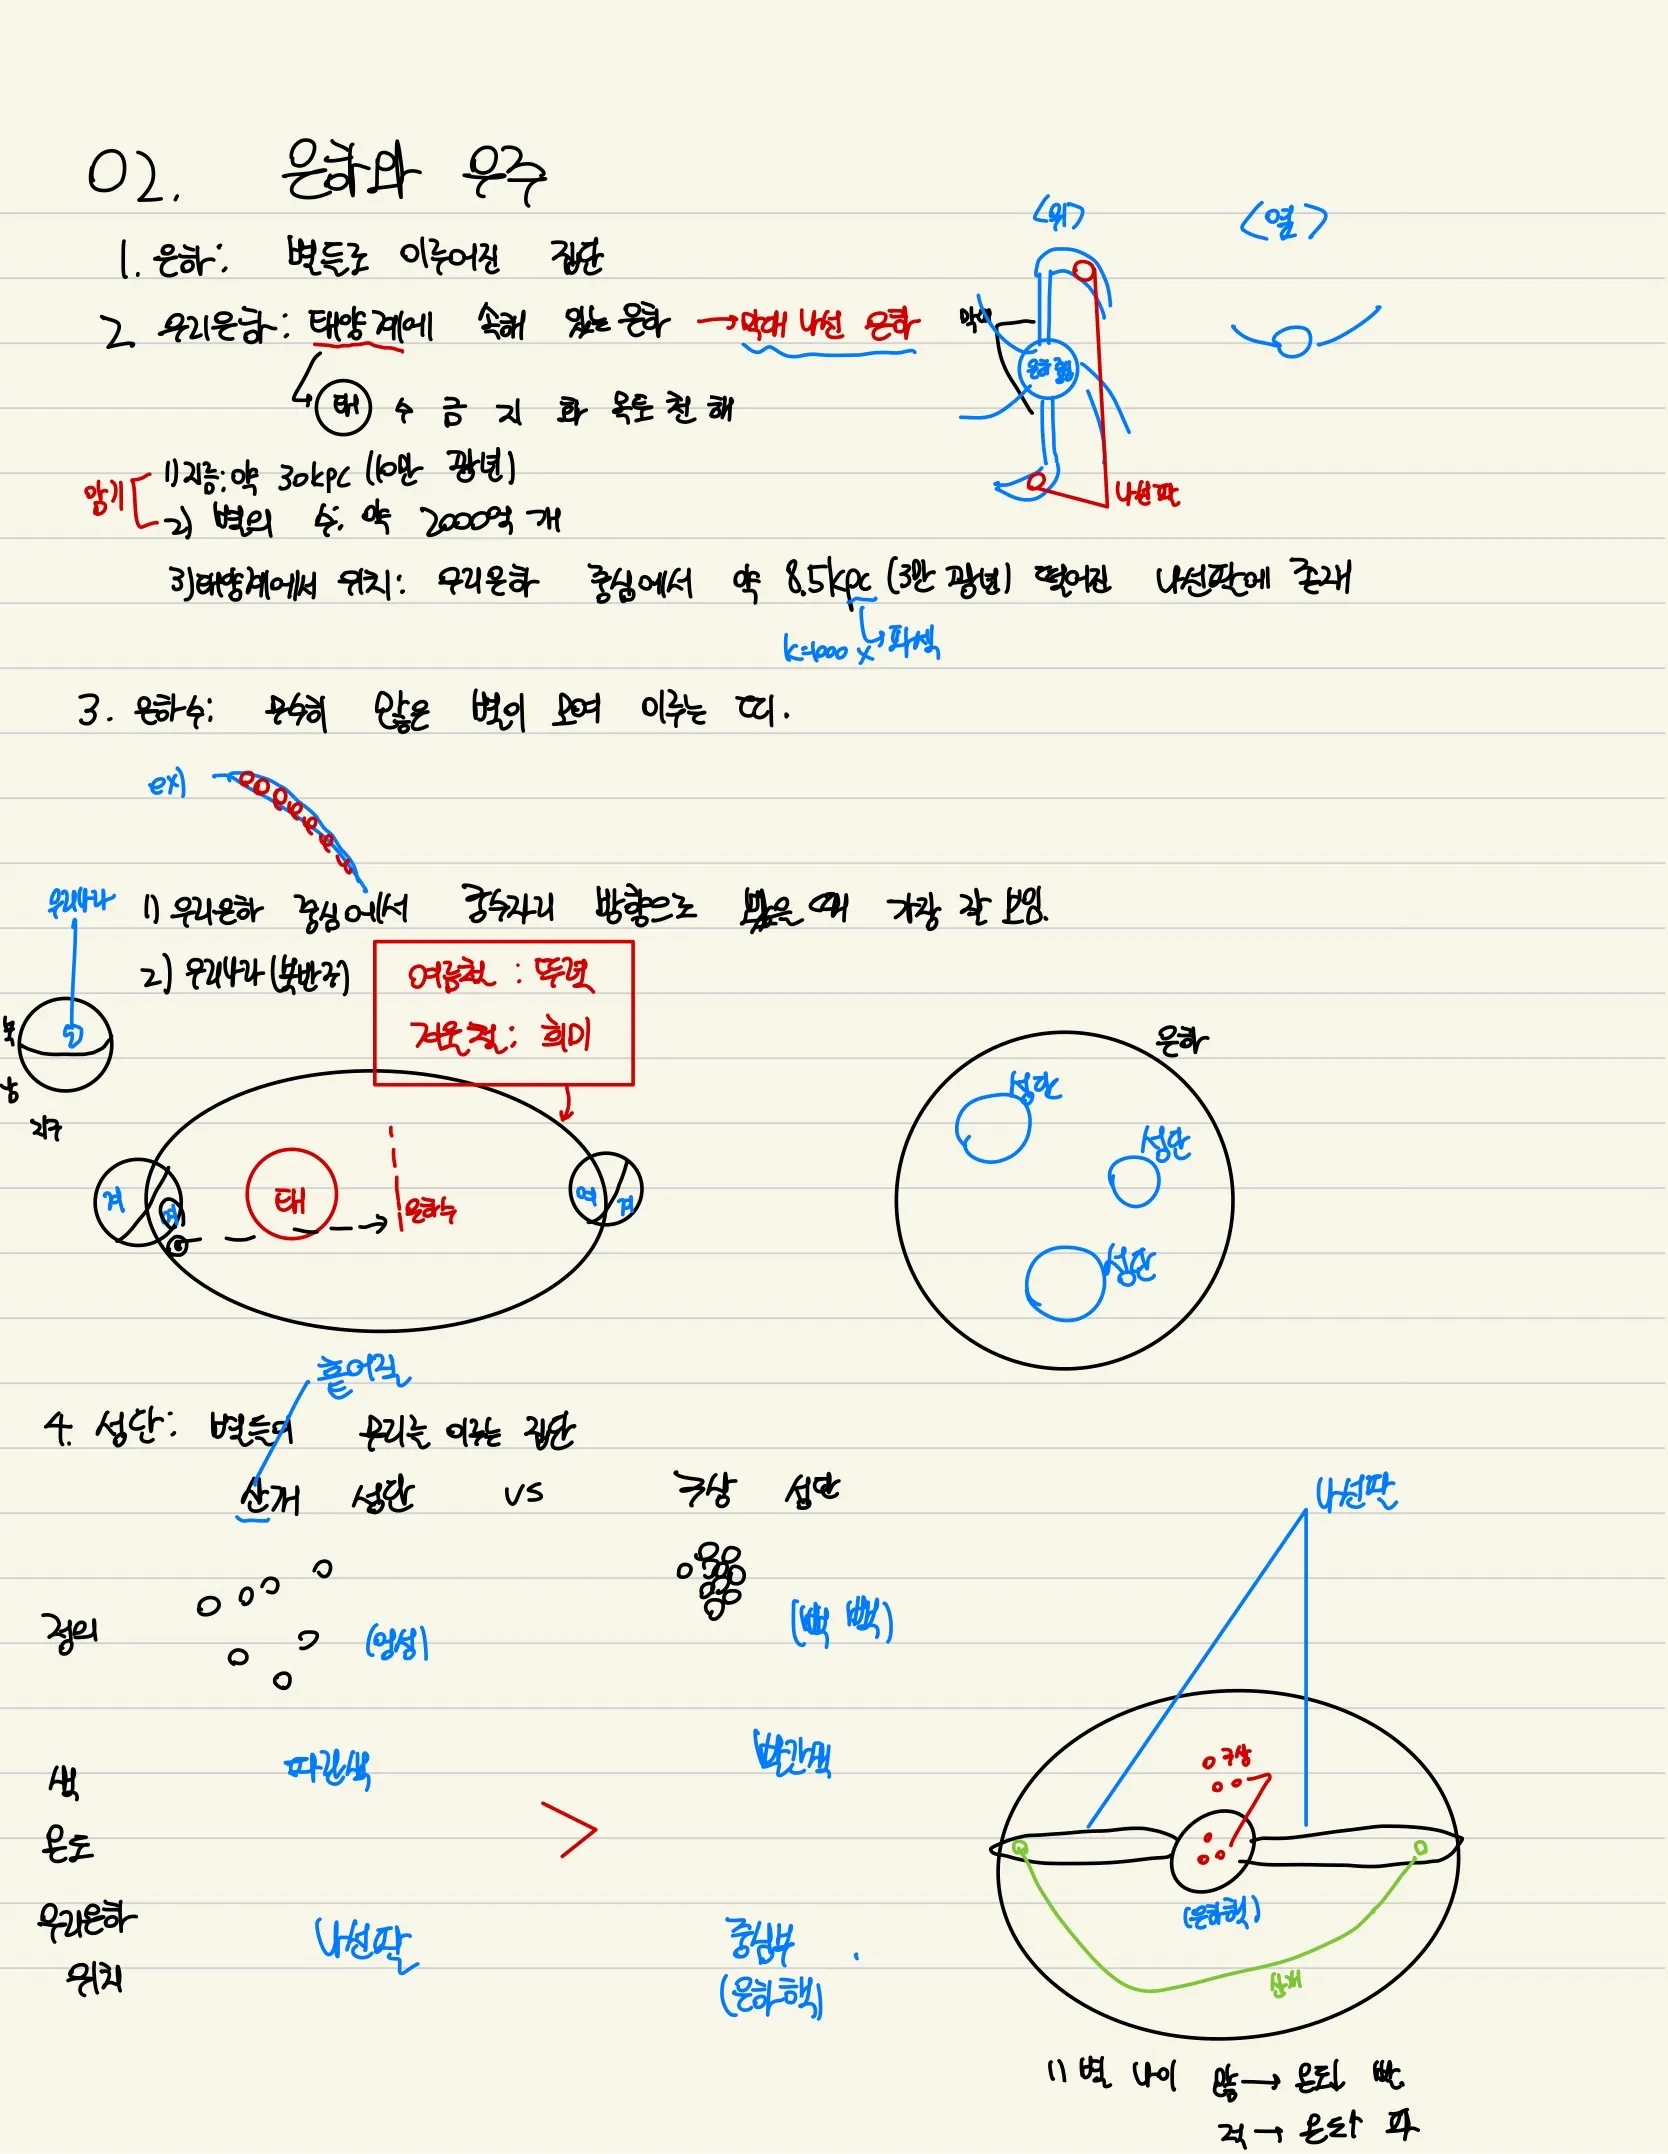 02. 은하와 우주
<위> <옆>
1. 은하: 별들로 이루어진 집단
2. 우리은하: 태양계에 속해 있는 은하 → 막대 나선 은하
막대
은하핵
태 수 금 지 화 목 토 천 해
암기
1) 지름: 약 30kpc (10만 광년)
나선팔
2) 별의 수: 약 2000억 개
3) 태양계에서 위치: 우리은하 중심에서 약 8.5kpc (3만 광년) 떨어진 나선팔에 존재
k=1000 x 파섹
3. 은하수: 무수히 많은 별이 모여 이루는 띠.
ex)
우리나라
1) 우리은하 중심에서 궁수자리 방향으로 봤을 때 가장 잘 보임.
2) 우리나라 (북반구)
여름철 : 뚜렷
겨울철 : 희미
북
남
지구
은하
성단
성단
성단
겨
여
태
은하수
여
겨
흩어질
4. 성단: 별들이 무리를 이루는 집단
산개 성단 vs 구상 성단
나선팔
정의 (엉성) (빽빽)
색 파란색 빨간색
구상
온도 >
우리은하
위치
나선팔
중심부
(은하핵)
(은하핵)
산개
1) 별 나이 많 → 온도↓ 빨
적 → 온도↑ 파